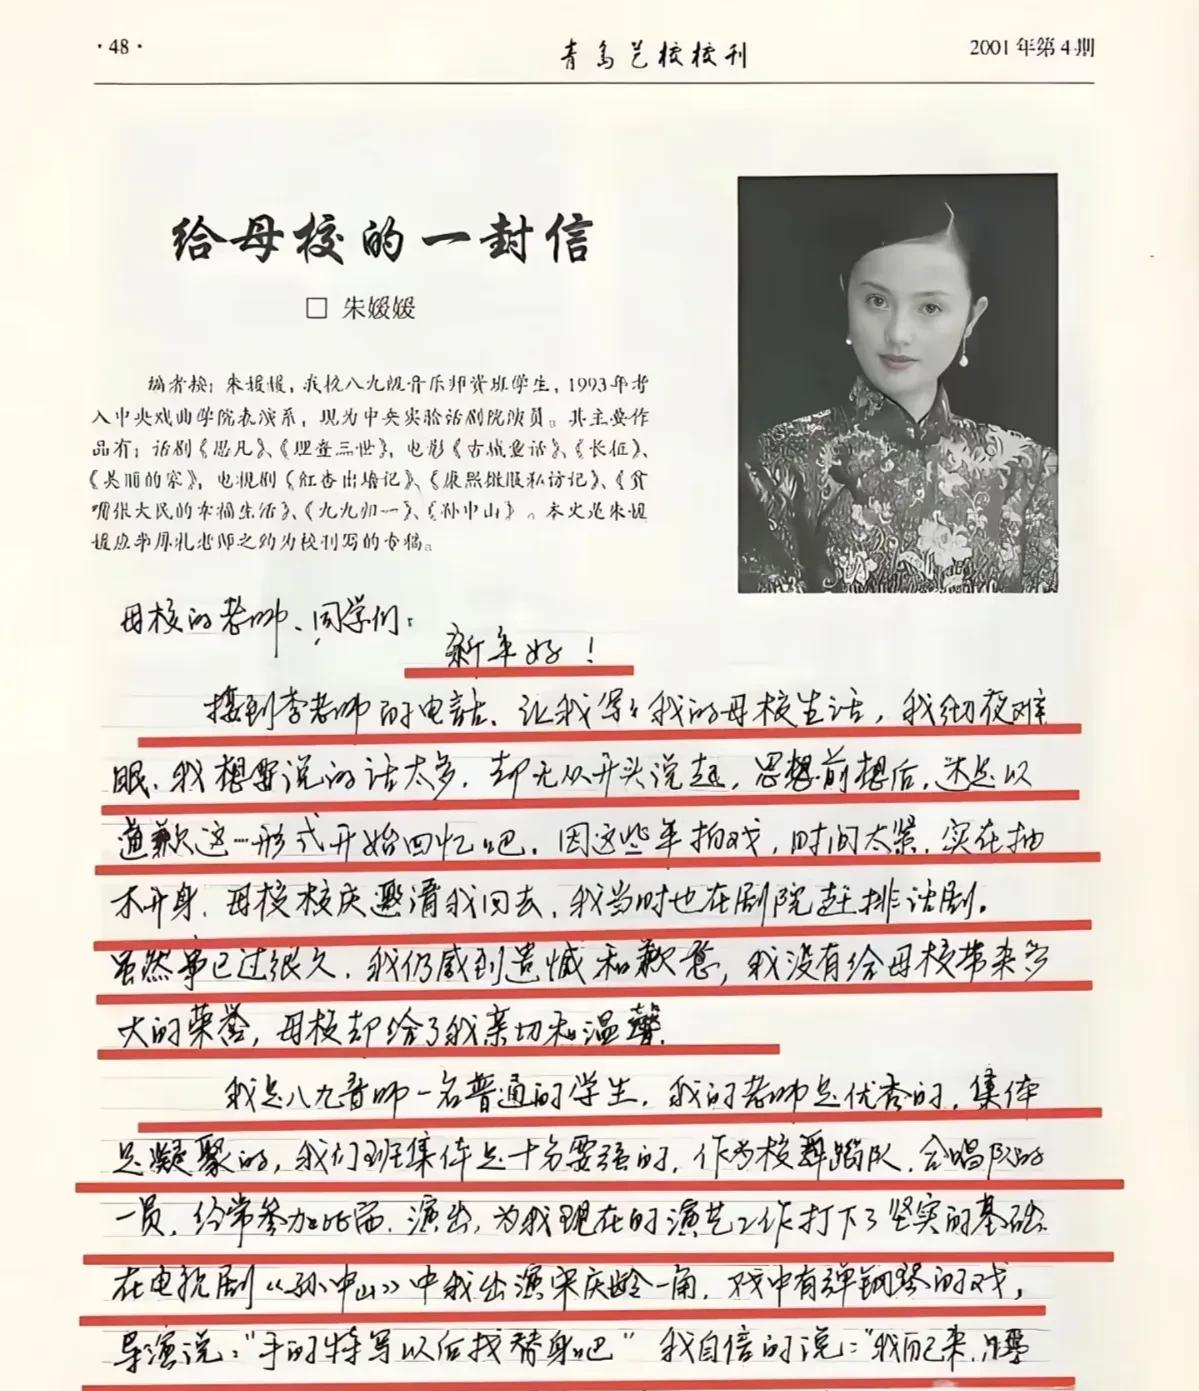 ·48·
青岛艺校校刊
2001 年第 4 期
给母校的一封信
□ 朱媛媛
编者按：朱媛媛，我校八九级音乐师资班学生，1993年考
入中央戏曲学院表演系，现为中央实验话剧院演员。其主要作
品有：话剧《思凡》、《理查三世》，电影《古城童话》、《长征》、
《美丽的家》，电视剧《红杏出墙记》、《康熙微服私访记》、《贫
嘴张大民的幸福生活》、《九九归一》、《孙中山》。本文是朱媛
媛应李厚礼老师之约为校刊写的专稿。
母校的老师、同学们：
新年好！
接到李老师的电话，让我写写我的母校生活，我彻夜难
眠，我想要说的话太多，却无从开头说起，思想前想后，还是以
道歉这一形式开始回忆吧。因这些年拍戏，时间太紧，实在抽
不开身，母校校庆邀请我回去，我当时也在剧院赶排话剧。
虽然事已过很久，我仍感到遗憾和歉意，我没有给母校带来多
大的荣誉，母校却给了我亲切和温馨。
我是八九音师一名普通的学生，我的老师是优秀的，集体
是凝聚的，我们班集体是十分要强的，作为校舞蹈队、合唱队的
一员，经常参加比赛、演出，为我现在的演艺工作打下了坚实的基础。
在电视剧《孙中山》中我出演宋庆龄一角，戏中有弹钢琴的戏，
导演说："手的特写以后找替身吧" 我自信的说："我自己来，